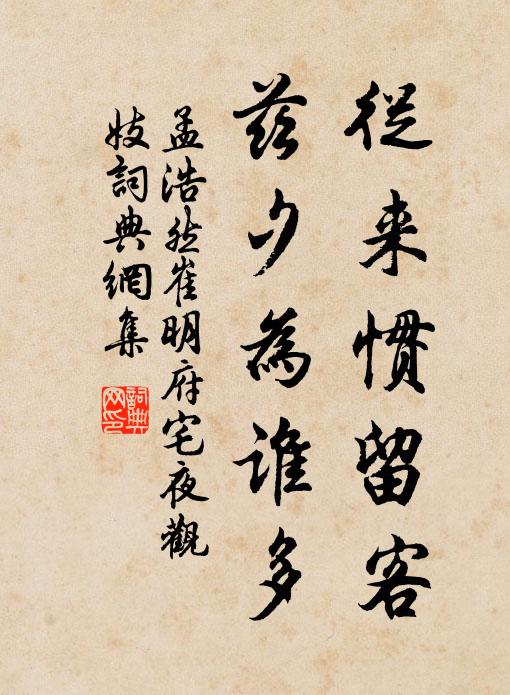 從来慣留客
茲夕為誰多
孟浩然崔明府宅夜觀
妓詞典網集
詞典網印